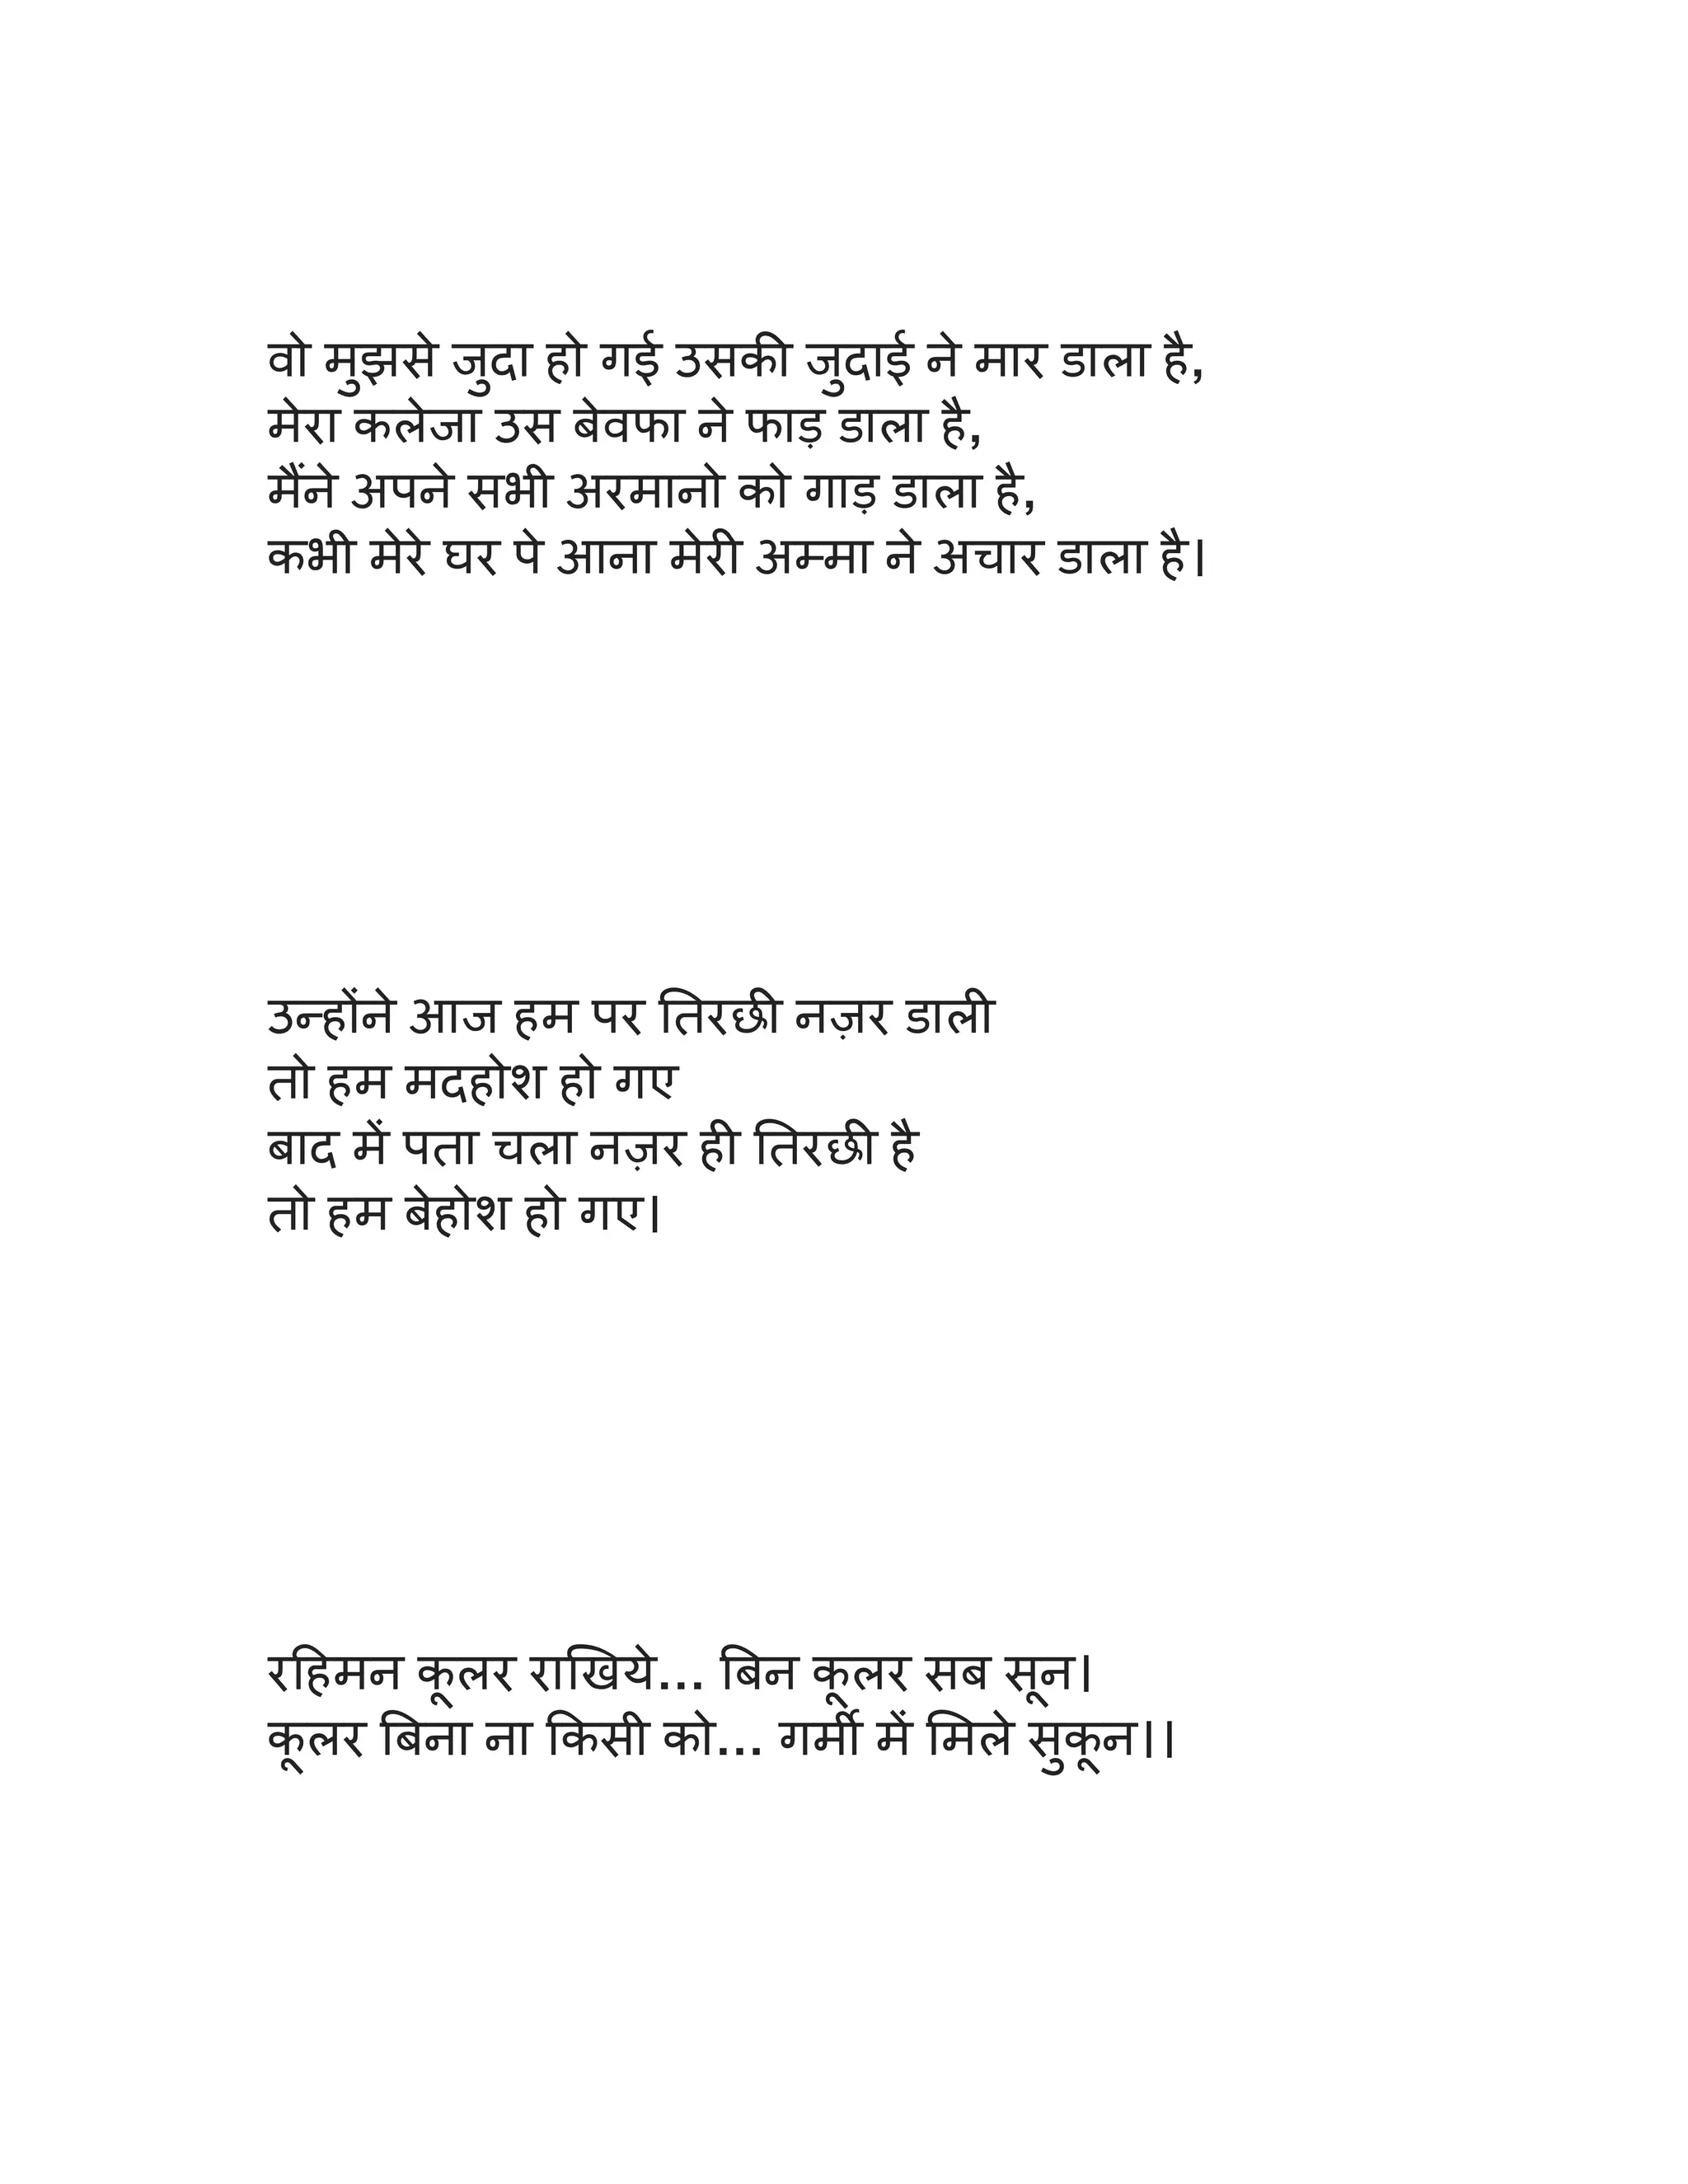 वो मुझसे जुदा हो गई उसकी जुदाई ने मार डाला है,
मेरा कलेजा उस बेवफा ने फाड़ डाला है,
मैंने अपने सभी अरमानो को गाड़ डाला है,
कभी मेरे घर पे आना मेरी अम्मा ने अचार डाला है।
उन्होंने आज हम पर तिरछी नज़र डाली
तो हम मदहोश हो गए
बाद में पता चला नज़र ही तिरछी है
तो हम बेहोश हो गए।
रहिमन कूलर राखिये... बिन कूलर सब सून।
कूलर बिना ना किसी को... गर्मी में मिले सुकून।।